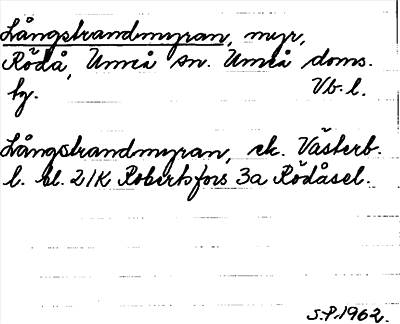 Långstrandmyran, myr,
Rödå, Umeå sn. Umeå doms.
hg. Vb. l.
Långstrandmyran, ek. Västerb.
l. bl. 21K Robertsfors 3a Rödåsel.
S.P. 1962.